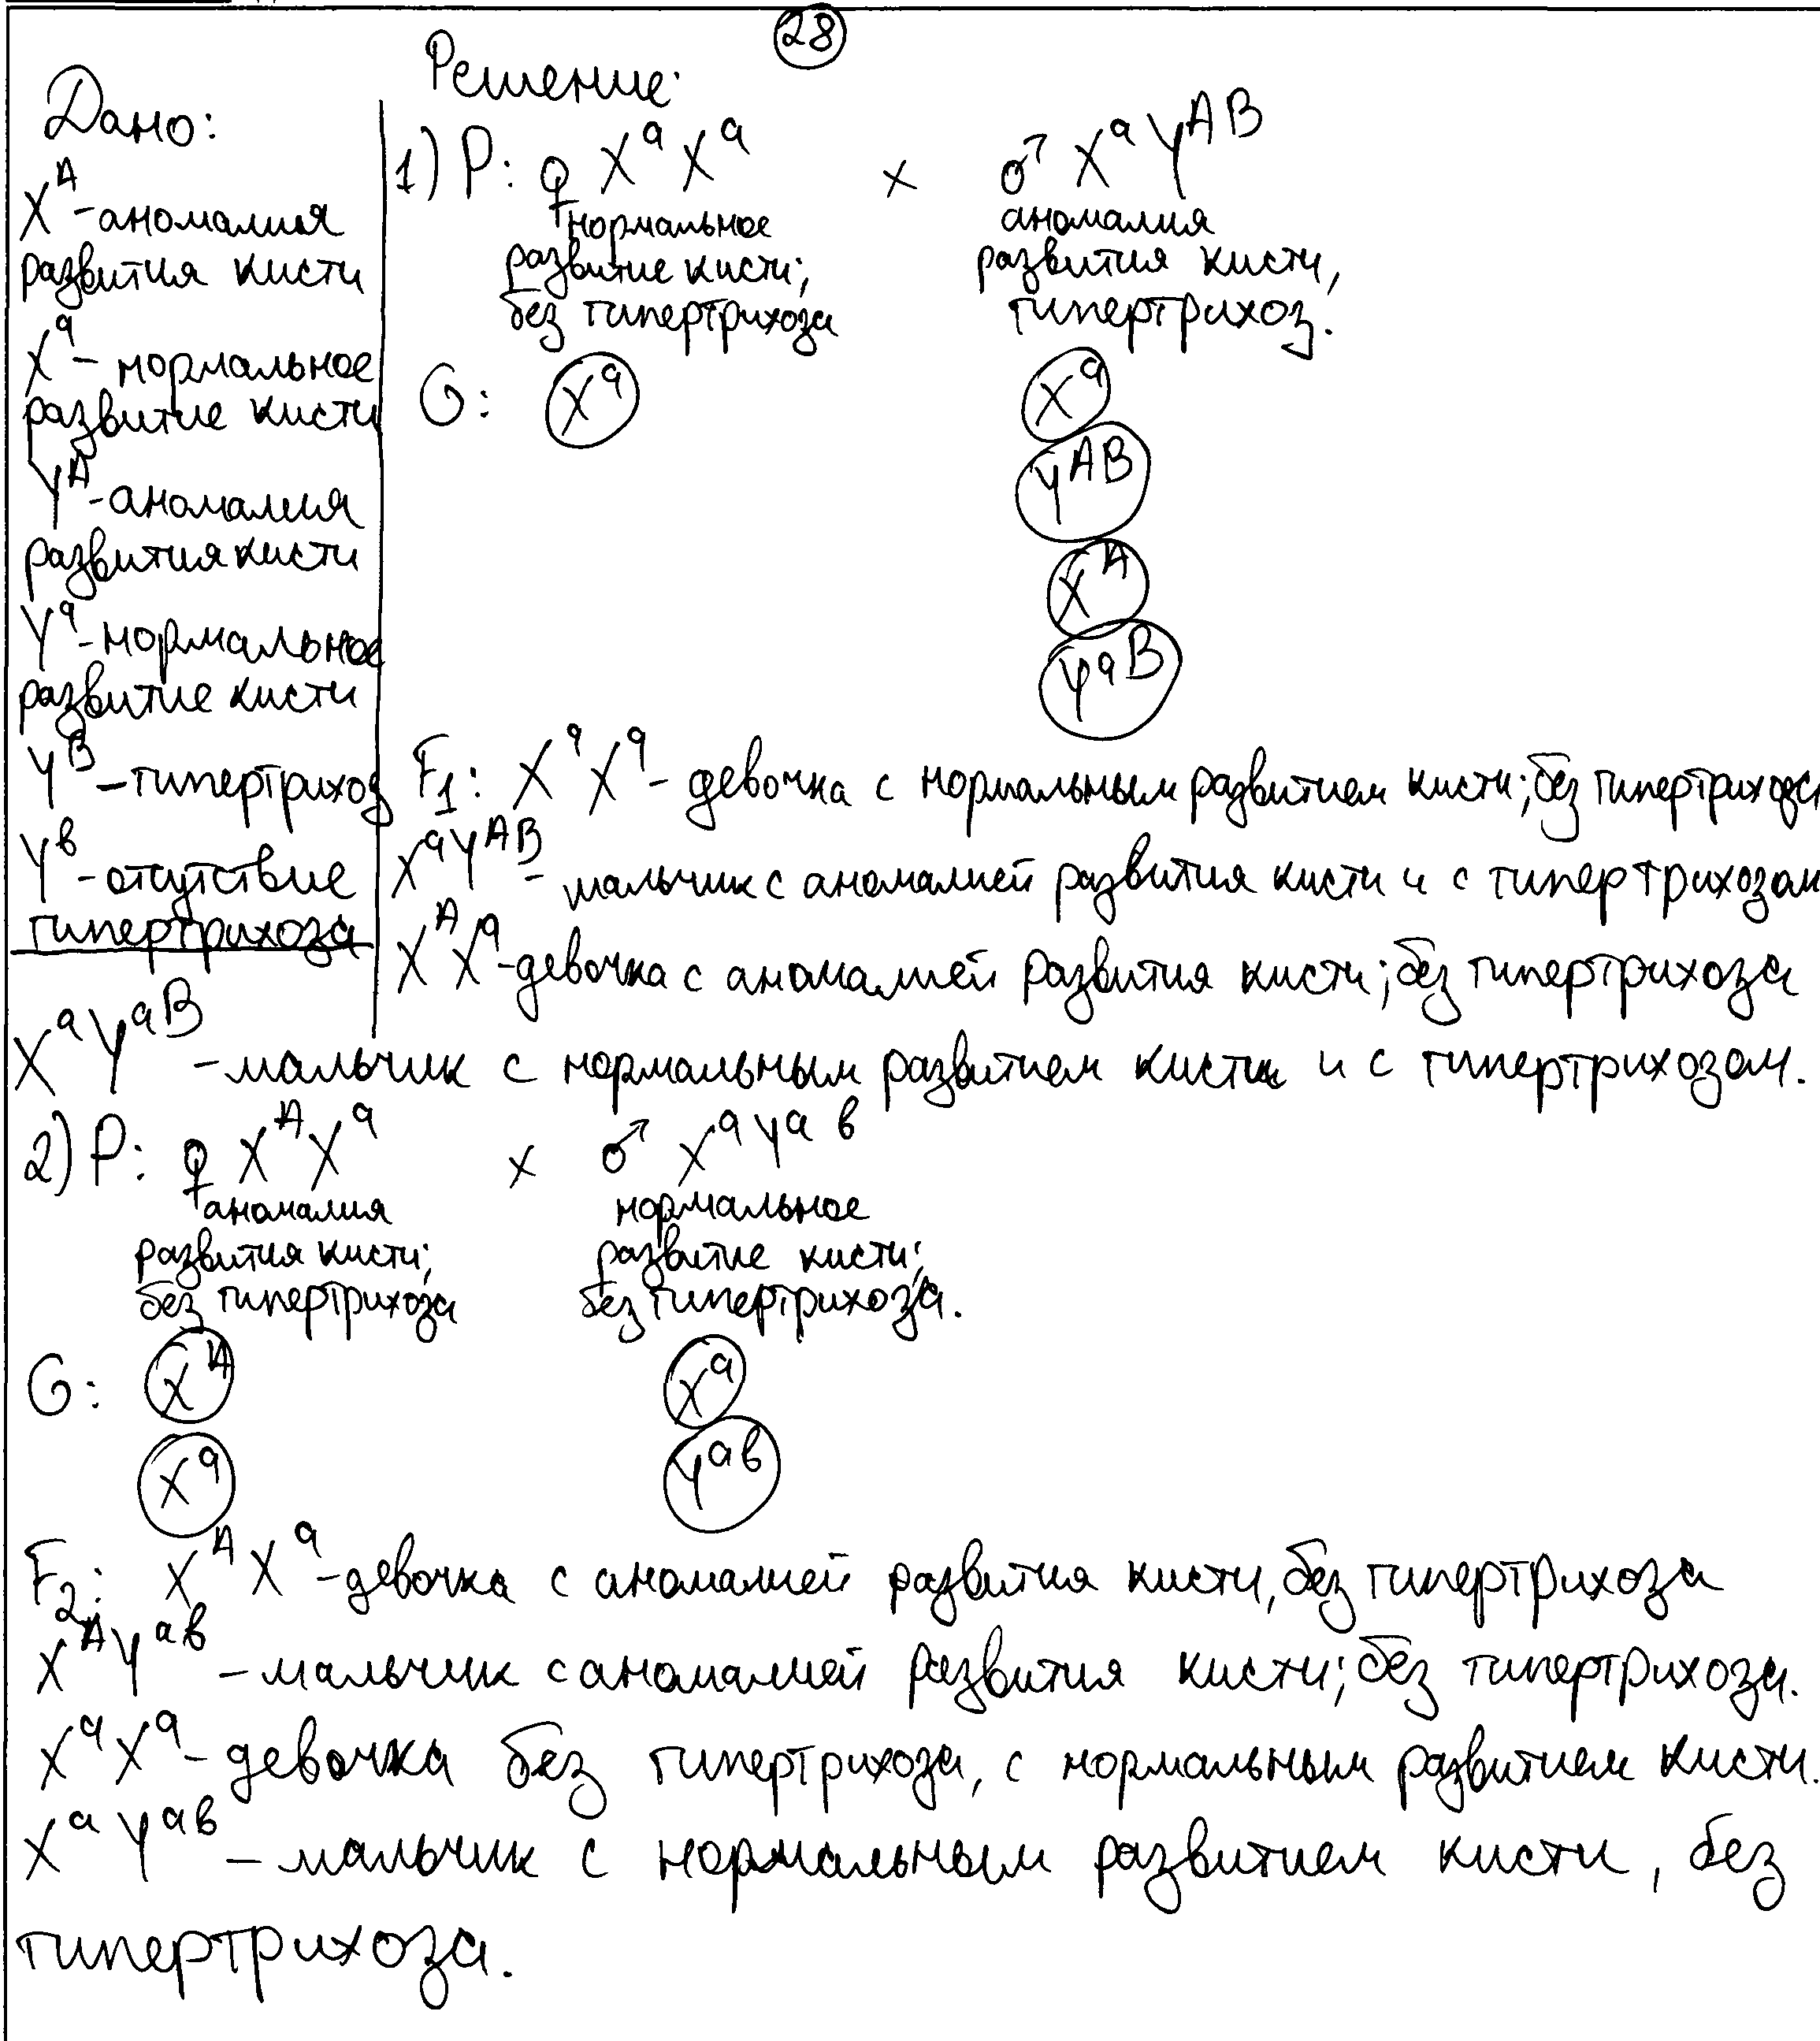 28
Дано:
X^A - аномалия
развития кисти
X^a - нормальное
развитие кисти
Y^A - аномалия
развития кисти
Y^a - нормальное
развитие кисти
Y^B - гипертрихоз
Y^b - отсутствие
гипертрихоза
Решение:
1) P: ♀ X^a X^a × ♂ X^a Y^AB
нормальное аномалия
развитие кисти; развития кисти,
без гипертрихоза гипертрихоз.
G: X^a X^a
Y^AB
X^A
Y^aB
F1: X^a X^a - девочка с нормальным развитием кисти; без гипертрихоза
X^a Y^AB - мальчик с аномалией развития кисти и с гипертрихозом
X^A X^a - девочка с аномалией развития кисти; без гипертрихоза
X^a Y^aB - мальчик с нормальным развитием кисти и с гипертрихозом.
2) P: ♀ X^A X^a × ♂ X^a Y^ab
аномалия нормальное
развития кисти; развитие кисти;
без гипертрихоза без гипертрихоза.
G: X^A X^a
X^a Y^ab
F2: X^A X^a - девочка с аномалией развития кисти, без гипертрихоза
X^A Y^ab - мальчик с аномалией развития кисти; без гипертрихоза.
X^a X^a - девочка без гипертрихоза, с нормальным развитием кисти.
X^a Y^ab - мальчик с нормальным развитием кисти, без
гипертрихоза.